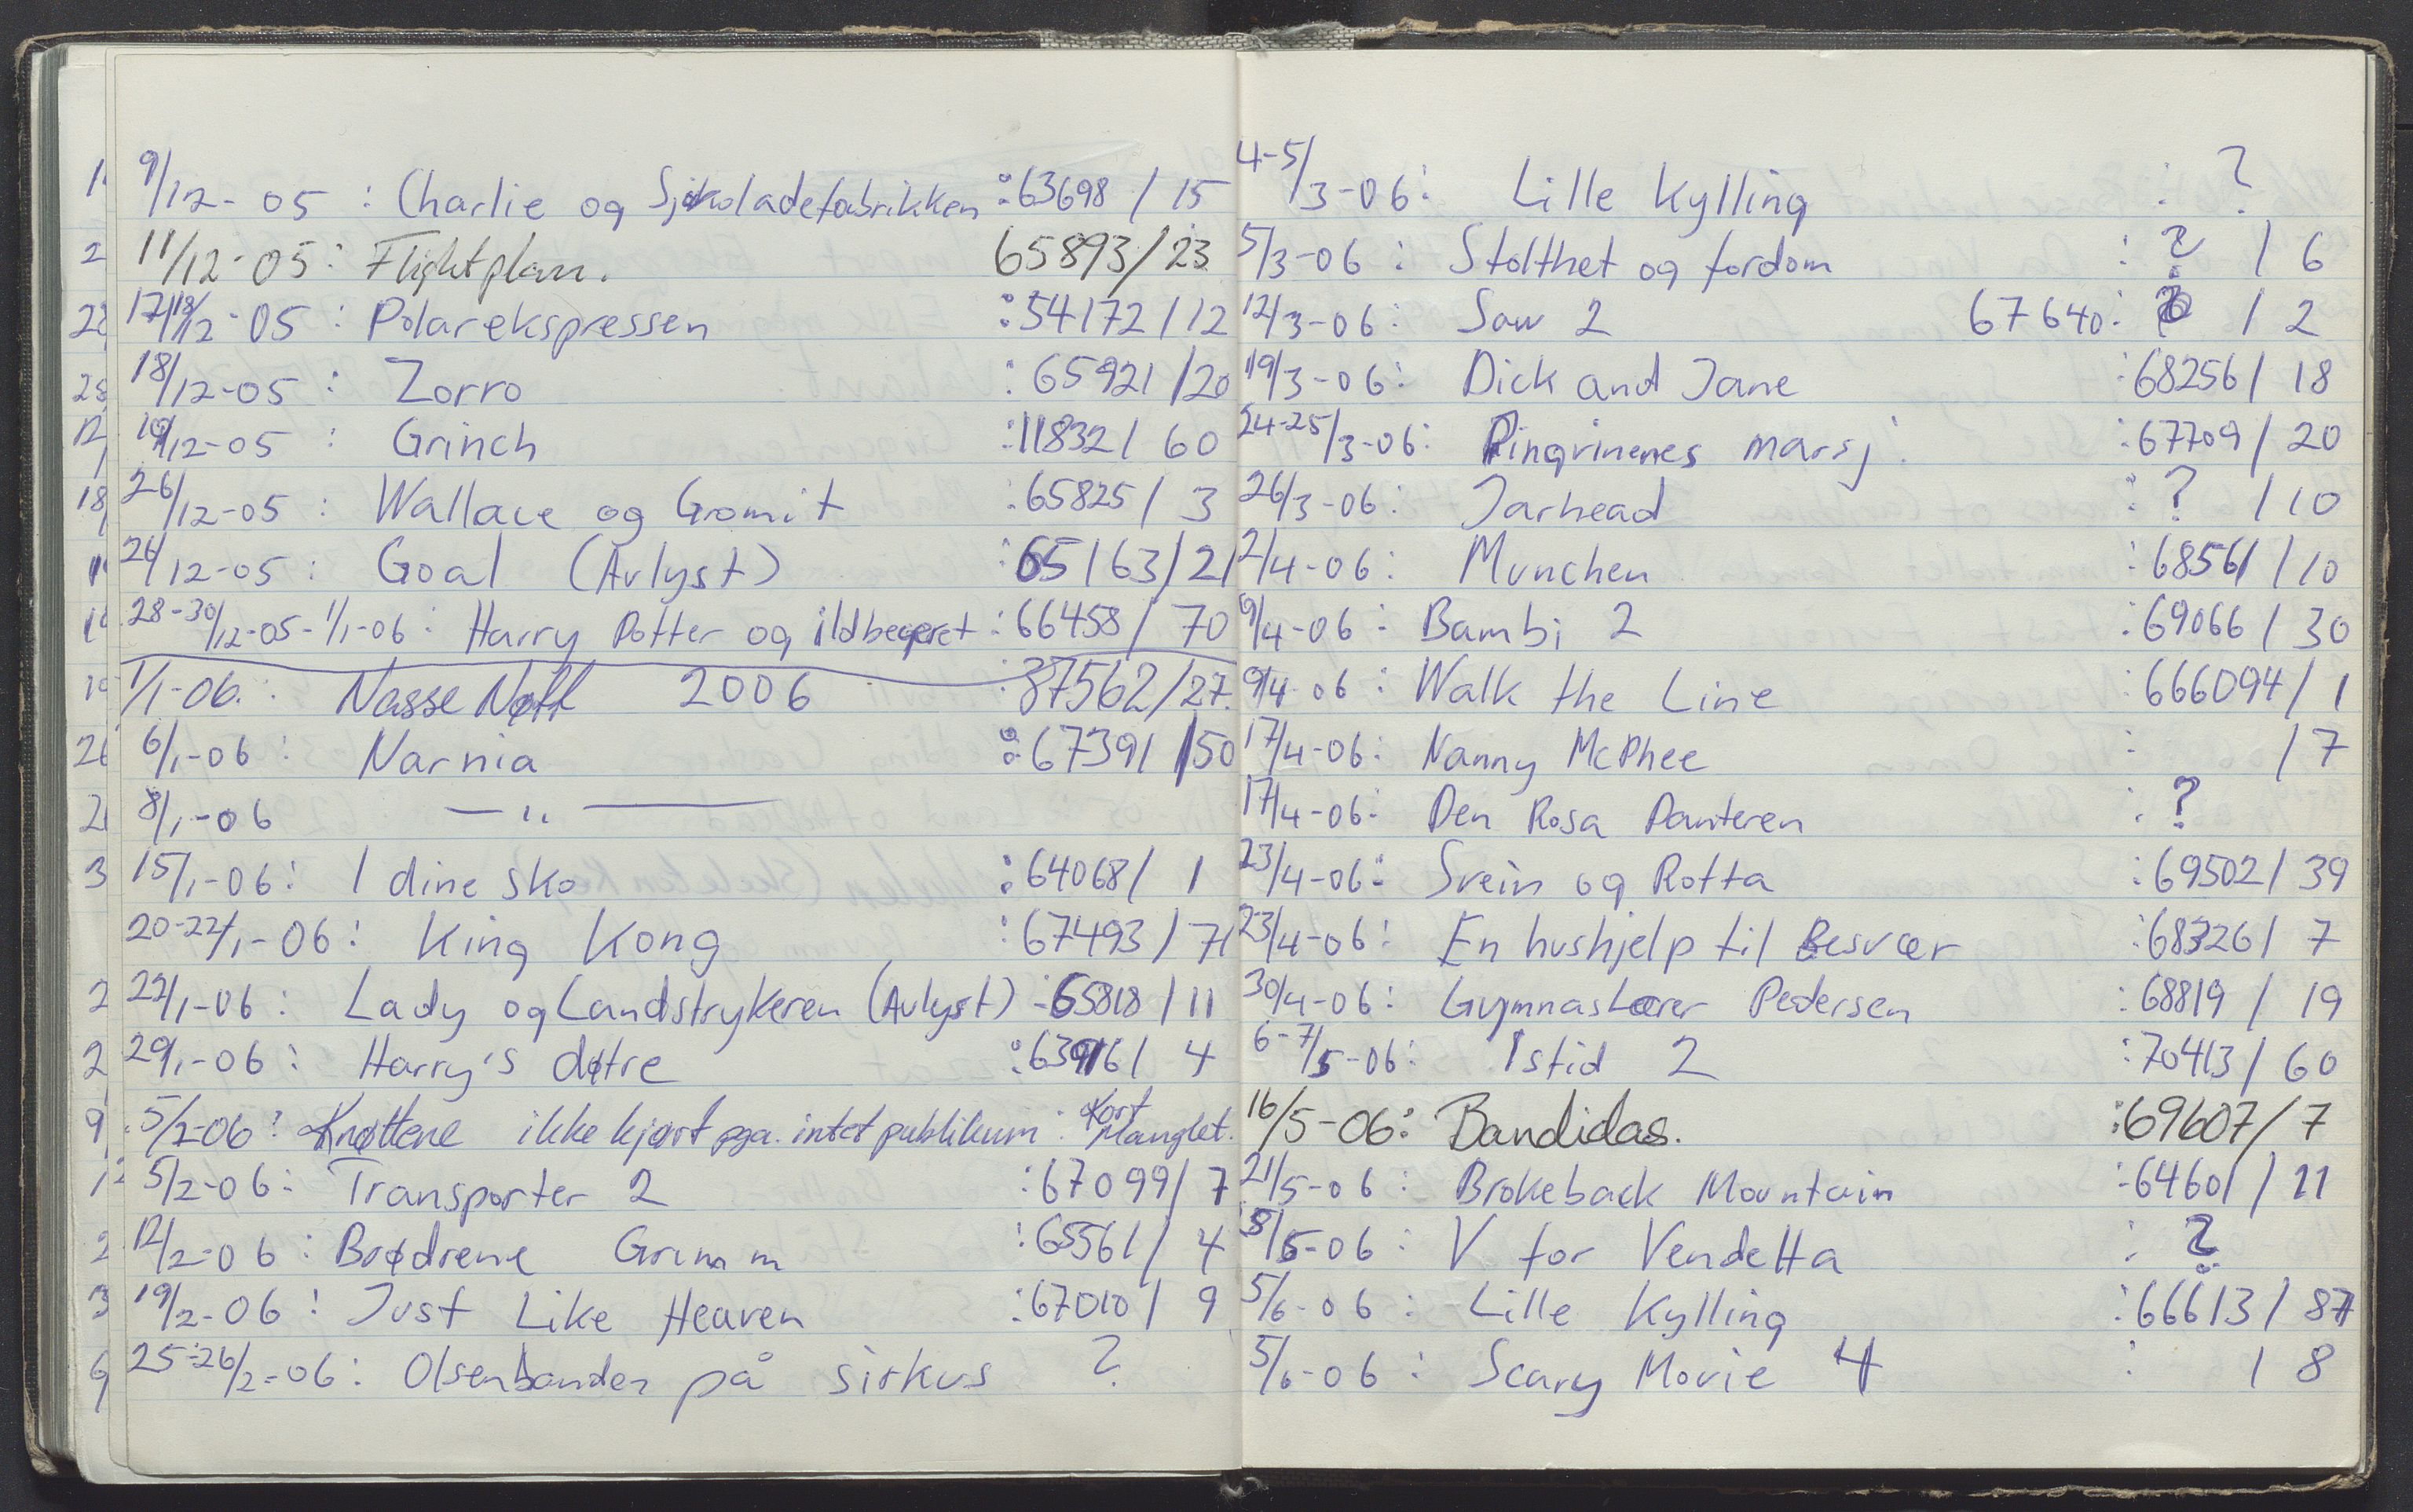 9/12-05 : Charlie og Sjokoladefabrikken : 63698 / 15
11/12-05 : Flightplan. 65893/23
17/18/12-05 : Polarekspressen : 54172 / 12
18/12-05 : Zorro : 65921 / 20
19/12-05 : Grinch : 11832 / 60
26/12-05 : Wallace og Gromit : 65825 / 3
26/12-05 : Goal (Avlyst) : 65163 / 21
28-30/12-05 - 1/1-06 : Harry Potter og ildbegeret : 66458 / 70
1/1-06. : Nasse Nøff 2006 : 37562/27.
6/1-06 : Narnia : 67391 / 50
8/1-06 — " —
15/1-06 : I dine sko : 64068 / 1
20-22/1-06 : King Kong : 67493 / 71
22/1-06 : Lady og Landstrykeren (Avlyst) : 65818 / 11
29/1-06 : Harry's døtre : 63916 / 4
5/2-06 : Knøttene ikke kjørt pga. intet publikum : Kort Manglet.
5/2-06 : Transporter 2 : 67099 / 7
12/2-06 : Brødrene Grimm : 65561 / 4
19/2-06 : Just Like Heaven : 67010 / 9
25-26/2-06 : Olsenbanden på sirkus ?
4-5/3-06 : Lille Kylling : ?
5/3-06 : Stolthet og fordom : ? / 6
12/3-06 : Saw 2 67640 : / 2
19/3-06 : Dick and Jane : 68256 / 18
24-25/3-06 : Pingvinenes marsj : 67709 / 20
26/3-06 : Jarhead : ? / 10
2/4-06 : Munchen : 68561 / 10
9/4-06 : Bambi 2 : 69066 / 30
9/4-06 : Walk the Line : 666094 / 1
17/4-06 : Nanny McPhee : / 7
17/4-06 : Den Rosa Panteren : ?
23/4-06 : Svein og Rotta : 69502 / 39
23/4-06 : En hushjelp til Besvær : 68326 / 7
30/4-06 : Gymnaslærer Pedersen : 68819 / 19
6-7/5-06 : Istid 2 : 70413 / 60
16/5-06 : Bandidas. : 69607 / 7
21/5-06 : Brokeback Mountain : 64601 / 11
5/6-06 : V for Vendetta : ?
5/6-06 : Lille Kylling : 66613 / 87
5/6-06 : Scary Movie 4 : / 8